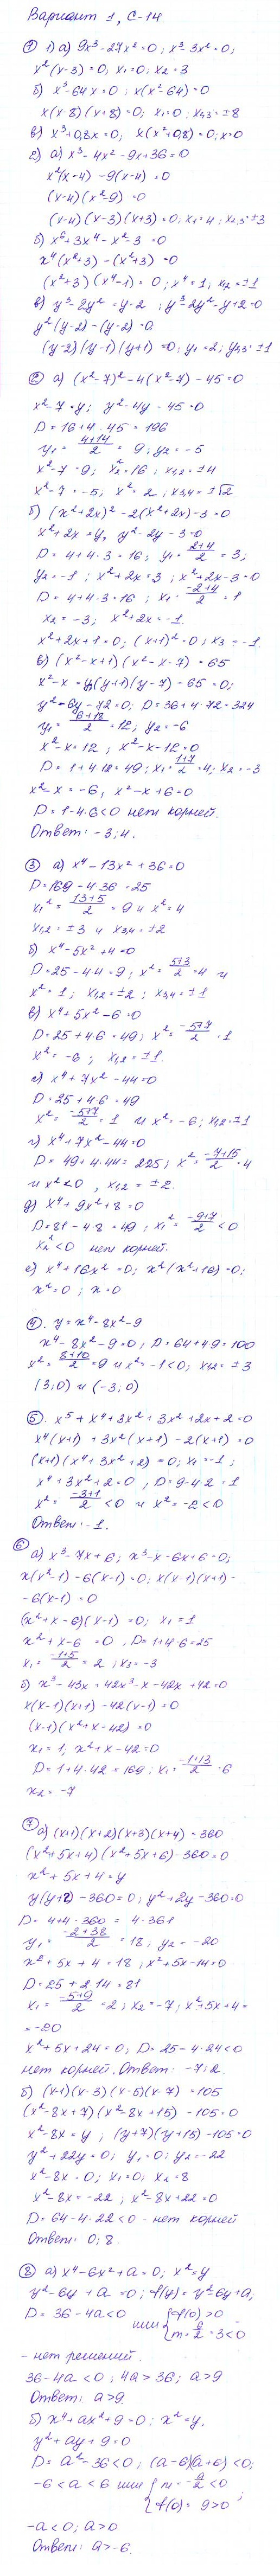 Вариант 1, С-14.
① 1) а) 9x³-27x²=0; x³-3x²=0;
x²(x-3)=0; x₁=0; x₂=3
б) x³-64x=0; x(x²-64)=0
x(x-8)(x+8)=0; x₁=0; x₂,₃=±8
в) x³+0,8x=0; x(x²+0,8)=0; x=0
2) а) x³-4x²-9x+36=0
x²(x-4)-9(x-4)=0
(x-4)(x²-9)=0
(x-4)(x-3)(x+3)=0; x₁=4; x₂,₃=±3
б) x⁶+3x⁴-x²-3=0
x⁴(x²+3)-(x²+3)=0
(x²+3)(x⁴-1)=0; x⁴=1; x₁,₂=±1
в) y³-2y²=y-2; y³-2y²-y+2=0
y²(y-2)-(y-2)=0
(y-2)(y-1)(y+1)=0; y₁=2; y₂,₃=±1
② а) (x²-7)²-4(x²-7)-45=0
x²-7=y; y²-4y-45=0
D=16+4·45=196
y₁=(4+14)/2=9; y₂=-5
x²-7=9; x²=16; x₁,₂=±4
x²-7=-5, x²=2; x₃,₄=±√2
б) (x²+2x)²-2(x²+2x)-3=0
x²+2x=y, y²-2y-3=0
D=4+4·3=16; y₁=(2+4)/2=3;
y₂=-1; x²+2x=3; x²+2x-3=0
D=4+4·3=16; x₁=(-2+4)/2=1
x₂=-3; x²+2x=-1.
x²+2x+1=0; (x+1)²=0; x₃=-1.
в) (x²-x+1)(x²-x-7)=65
x²-x=y; (y+1)(y-7)-65=0;
y²-6y-72=0; D=36+4·72=324
y₁=(6+18)/2=12; y₂=-6
x²-x=12; x²-x-12=0
D=1+4·12=49; x₁=(1+7)/2=4; x₂=-3
x²-x=-6; x²-x+6=0
D=1-4·6<0 нет корней.
Ответ: -3; 4.
③ а) x⁴-13x²+36=0
D=169-4·36=25
x₁²=(13+5)/2=9 и x²=4
x₁,₂=±3 и x₃,₄=±2
б) x⁴-5x²+4=0
D=25-4·4=9; x²=(5+3)/2=4 и
x²=1; x₁,₂=±2; x₃,₄=±1
в) x⁴+5x²-6=0
D=25+4·6=49; x²=(-5+7)/2=1
x²=-6; x₁,₂=±1.
г) x⁴+7x²-44=0
D=25+4·6=49
x²=(-5+7)/2=1 и x²=-6; x₁,₂=±1
г) x⁴+7x²-44=0
D=49+4·44=225; x²=(-7+15)/2=4
и x²<0, x₁,₂=±2.
д) x⁴+9x²+8=0
D=81-4·8=49; x₁²=(-9+7)/2<0
x₂²<0 нет корней.
е) x⁴+16x²=0; x²(x²+16)=0;
x²=0; x=0
④. y=x⁴-8x²-9
x⁴-8x²-9=0; D=64+4·9=100
x²=(8+10)/2=9 и x²=-1<0; x₁,₂=±3
(3;0) и (-3;0)
⑤. x⁵+x⁴+3x²+3x²+2x+2=0
x⁴(x+1)+3x²(x+1)-2(x+1)=0
(x+1)(x⁴+3x²+2)=0; x₁=-1;
x⁴+3x²+2=0, D=9-4·2=1
x²=(-3+1)/2<0 и x²=-2<0
Ответ: -1.
⑥
а) x³-7x+6; x³-x-6x+6=0;
x(x²-1)-6(x-1)=0; x(x-1)(x+1)-
-6(x-1)=0
(x²+x-6)(x-1)=0; x₁=1
x²+x-6=0, D=1+4·6=25
x₁=(-1+5)/2=2; x₃=-3
б) x³-43x+42x³-x-42x+42=0
x(x-1)(x+1)-42(x-1)=0
(x-1)(x²+x-42)=0
x₁=1; x²+x-42=0
D=1+4·42=169; x₁=(-1+13)/2=6
x₂=-7
⑦
а) (x+1)(x+2)(x+3)(x+4)=360
(x²+5x+4)(x²+5x+6)-360=0
x²+5x+4=y
y(y+2)-360=0; y²+2y-360=0
D=4+4·360=4·361
y₁=(-2+38)/2=18; y₂=-20
x²+5x+4=18; x²+5x-14=0
D=25+2·14=81
x₁=(-5+9)/2=2; x₂=-7; x²+5x+4=
=-20
x²+5x+24=0; D=25-4·24<0
нет корней. Ответ: -7; 2.
б) (x-1)(x-3)(x-5)(x-7)=105
(x²-8x+7)(x²-8x+15)-105=0
x²-8x=y; (y+7)(y+15)-105=0
y²+22y=0; y₁=0; y₂=-22
x²-8x=0; x₁=0; x₂=8
x²-8x=-22; x²-8x+22=0
D=64-4·22<0 - нет корней
Ответ: 0; 8.
⑧ а) x⁴-6x²+a=0; x²=y
y²-6y+a=0; f(y)=y²-6y+a;
D=36-4a<0 или {f(0)>0
m=6/2=3<0
- нет решений.
36-4a<0; 4a>36; a>9
Ответ: a>9.
б) x⁴+ax²+9=0; x²=y.
y²+ay+9=0
D=a²-36<0; (a-6)(a+6)<0;
-6<a<6 или {m=-a/2<0
f(0)=9>0;
-a<0; a>0
Ответ: a>-6.